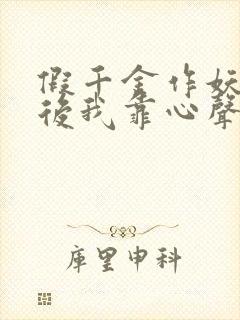 假千金作妖
後我靠心聲
庫里申科